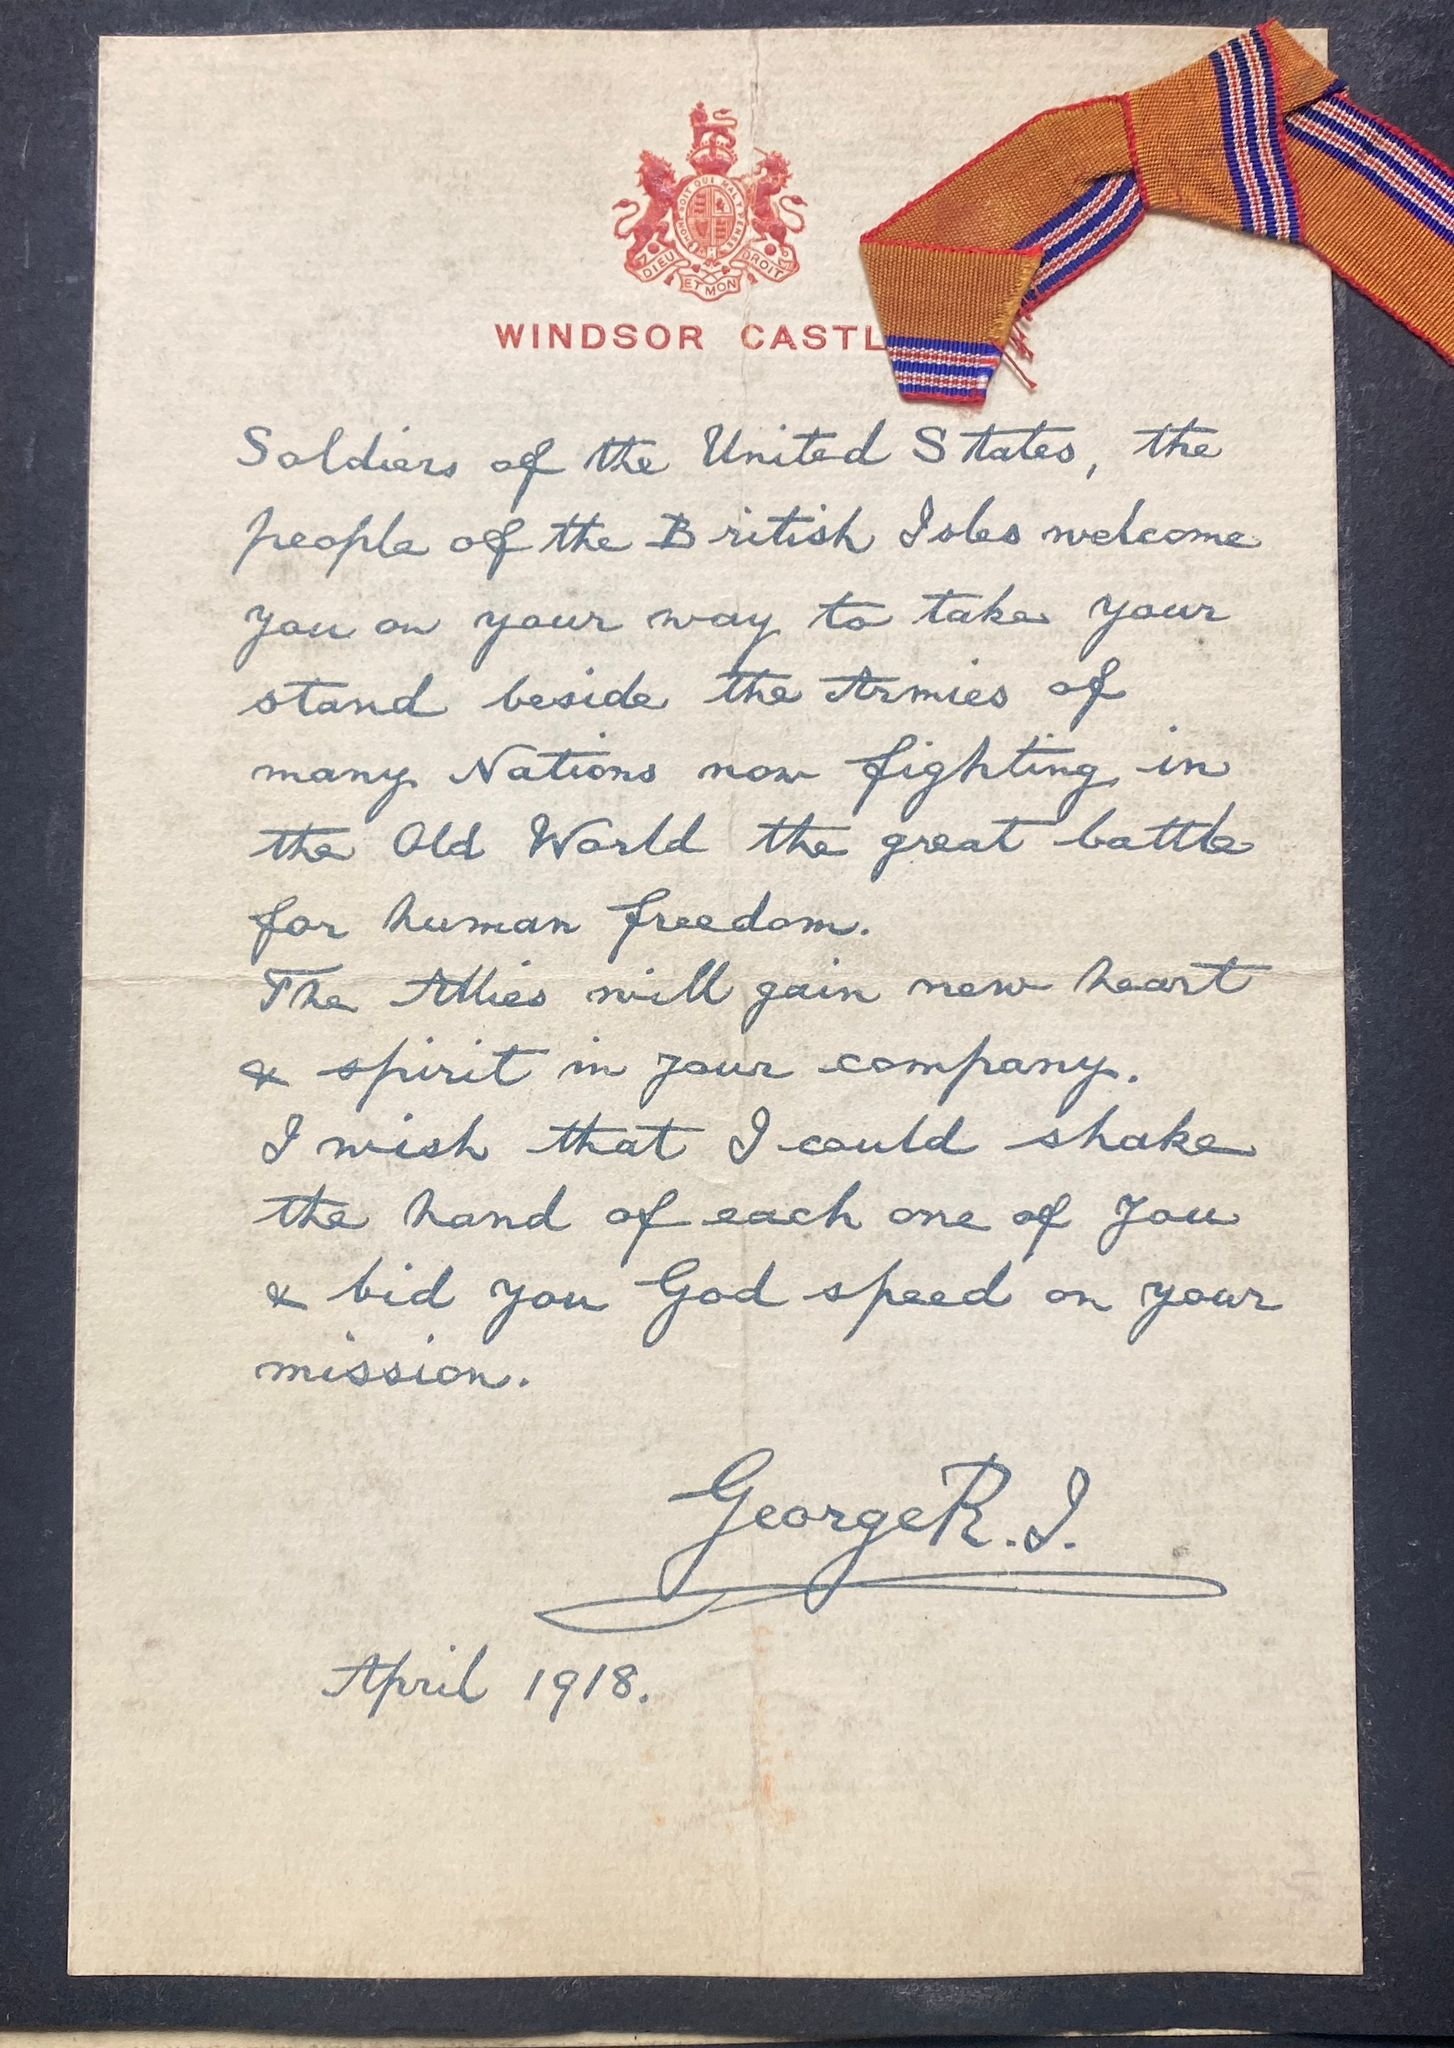 HONI SOIT QUI MAL Y PENSE
DIEU ET MON DROIT
WINDSOR CASTL
Soldiers of the United States, the
people of the British Isles welcome
you on your way to take your
stand beside the Armies of
many Nations now fighting in
the Old World the great battle
for human freedom.
The Allies will gain new heart
& spirit in your company.
I wish that I could shake
the hand of each one of you
& bid you God speed on your
mission.
George R.I.
April 1918.